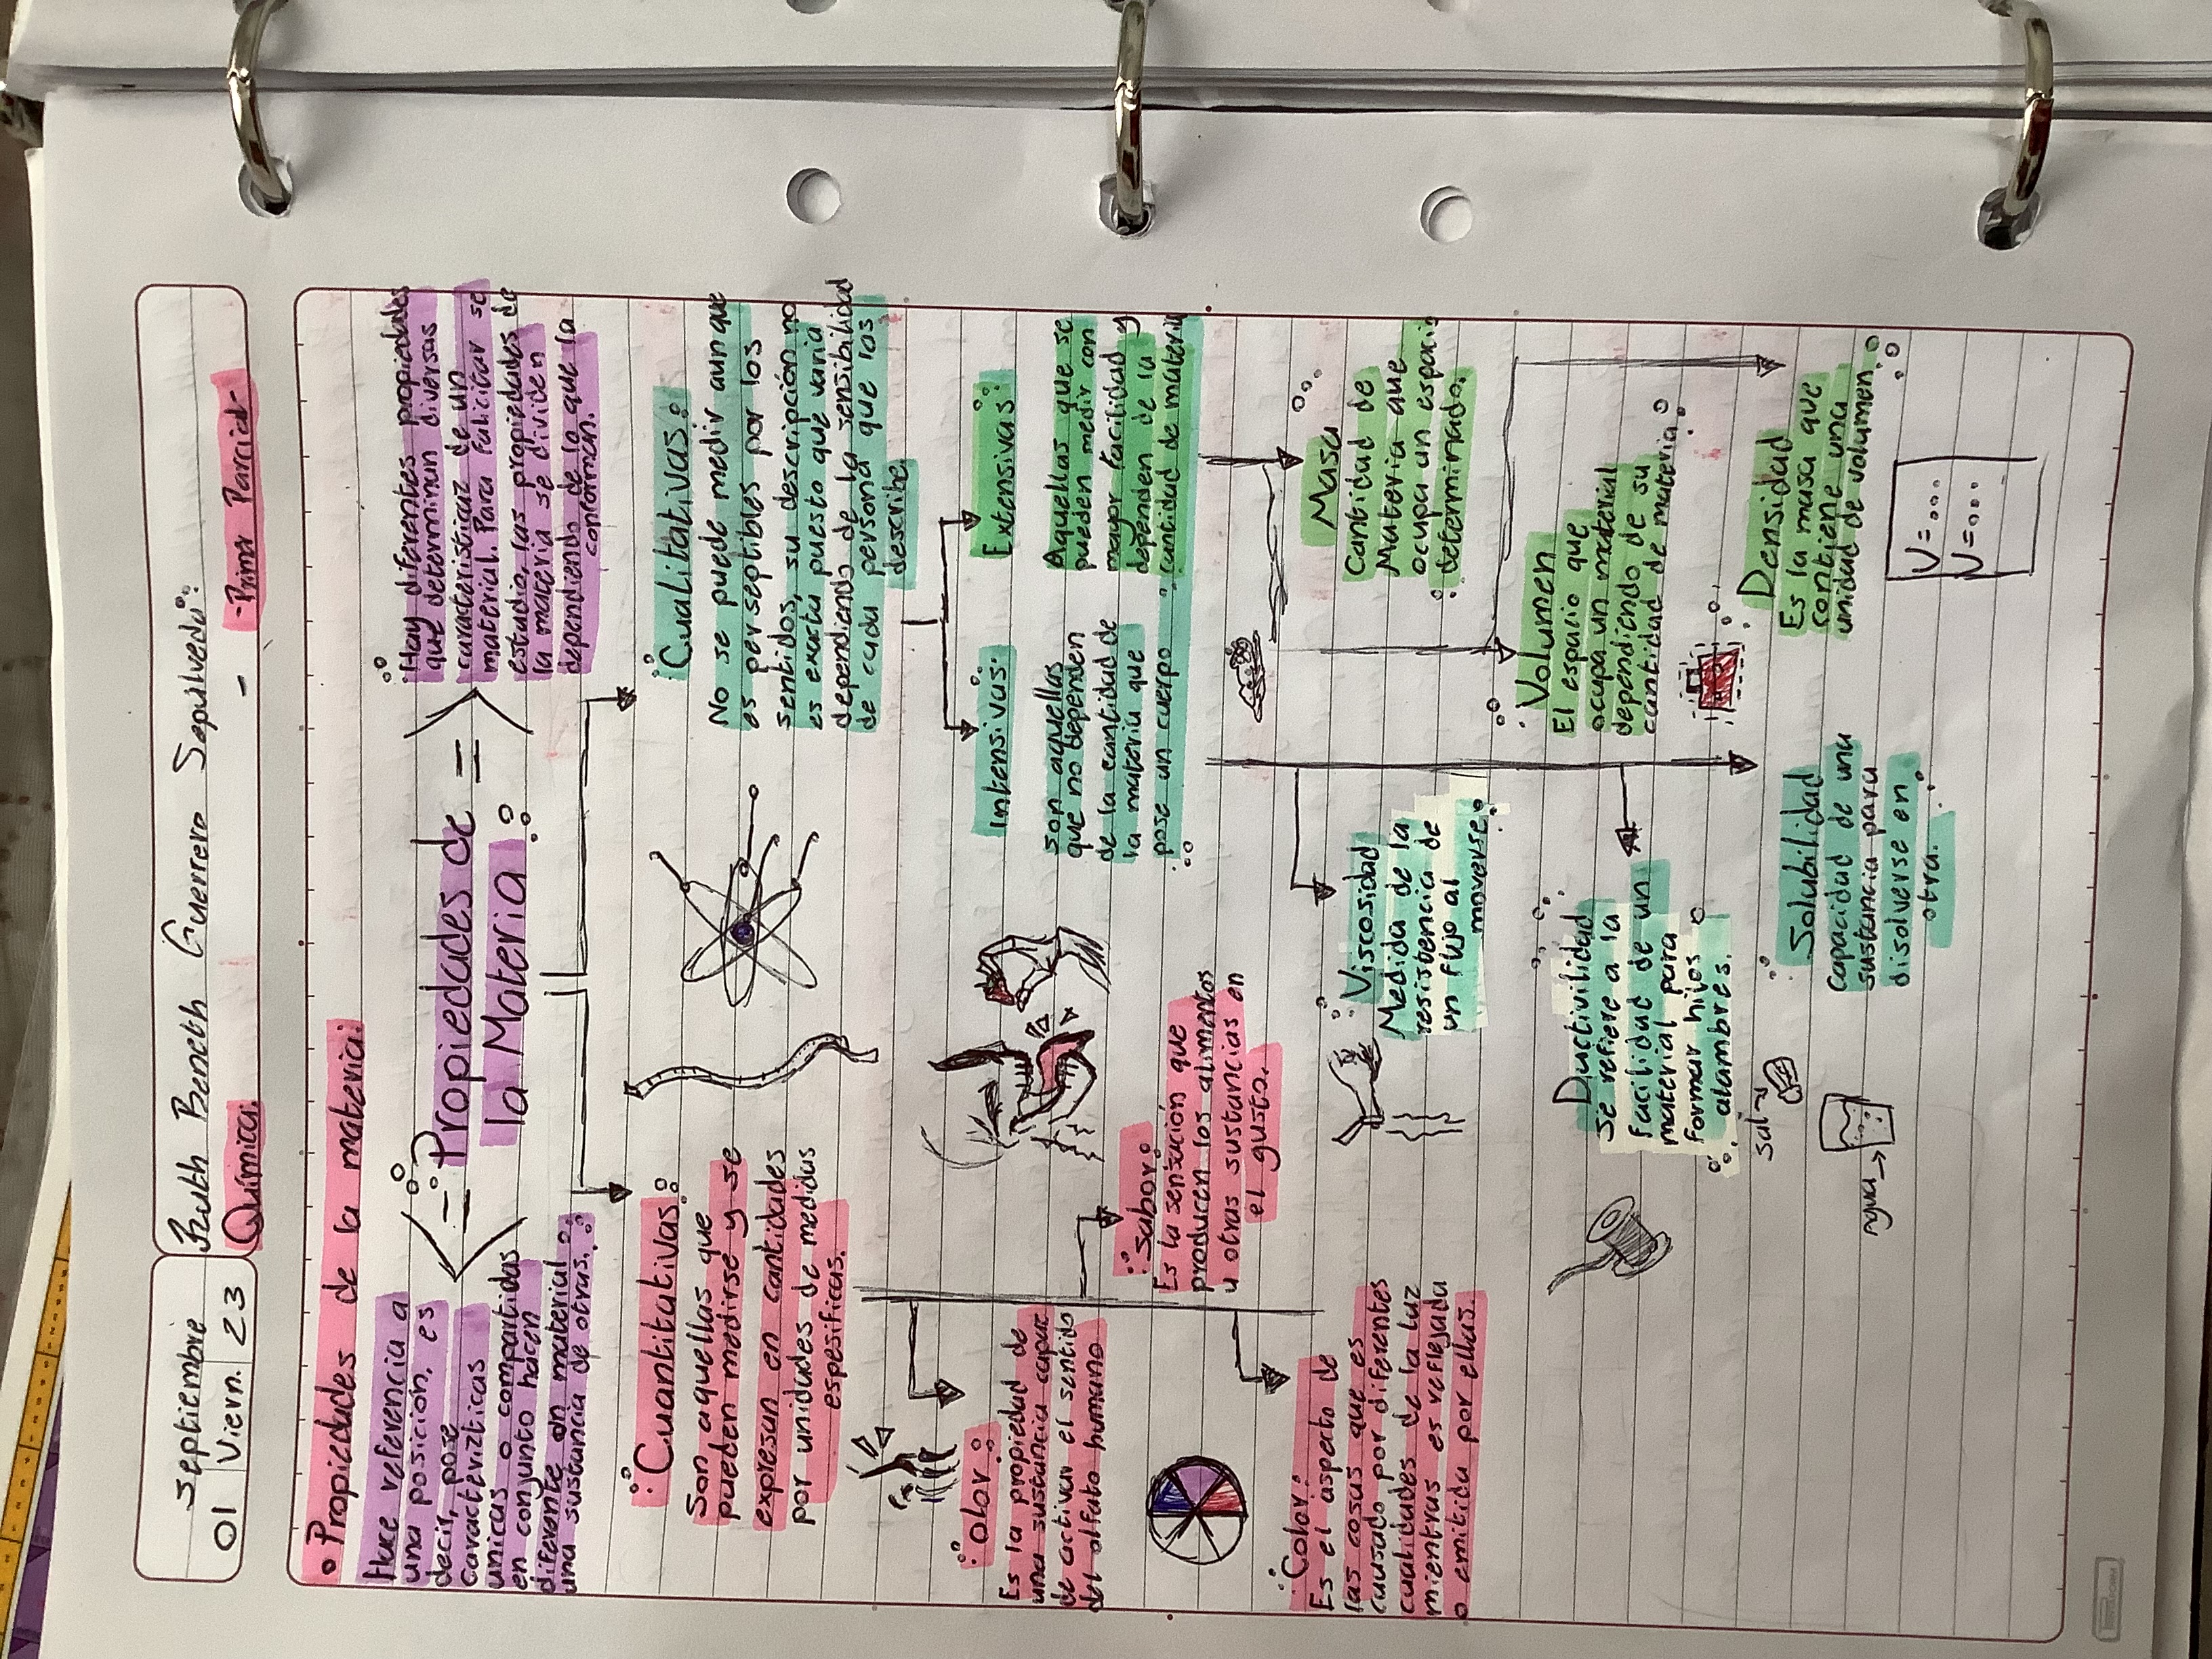 septiembre
01 Viern. 23
Ruth Beneth Guerrero Sepulveda:
Química.
- Primer Parcial -
• Propiedades de la materia:
Hace referencia a
una posición, es
decir, pose
caracterízticas
unicas o compartidas
en conjunto hacen
diferente on material
una sustancia de otras.
Propiedades de
la Materia
Hay diferentes propiedades
que determinan diversas
caracteristicaz de un
material. Para falicitar se
estudia, las propiedades de
la materia se dividen
dependiendo de lo que la
conforman.
Cuantitativas:
Son aquellas que
pueden medirse y se
expresan en cantidades
por unidades de medidas
espesificas.
Cualitativas:
No se puede medir aunque
es perseptibles por los
sentidos, su descripción no
es exacta puesto que varia
dependiendo de la sensibilidad
de cada persona que las
describe
Olor:
Es la propiedad de
una sustancia capaz
de activar el sentido
del olfato humano
Sabor:
Es la sensación que
producen los alimentos
u otras sustancias en
el gusto.
Color:
Es el aspecto de
las cosas que es
causado por diferentes
cualidades de la luz
mientras es reflejada
o emitida por ellas.
Intensivas:
son aquellas
que no dependen
de la cantidad de
la materia que
pose un cuerpo
Extensivas:
Aquellas que se
pueden medir con
mayor facilidad y
dependen de la
cantidad de material
Viscosidad
Medida de la
resistencia de
un flujo al
moverse.
Ductivilidad
Se refiere a la
facilidad de un
material para
formar hilos
alambres.
Solubilidad
Capacidad de una
sustancia para
disolverse en
otra.
sal
Agua
Masa
Cantidad de
Materia que
ocupa un espacio
determinado.
Volumen
El espacio que
ocupa un material
dependiendo de su
cantidad de materia
Densidad
Es la masa que
contiene una
unidad de volumen.
V=...
V=...